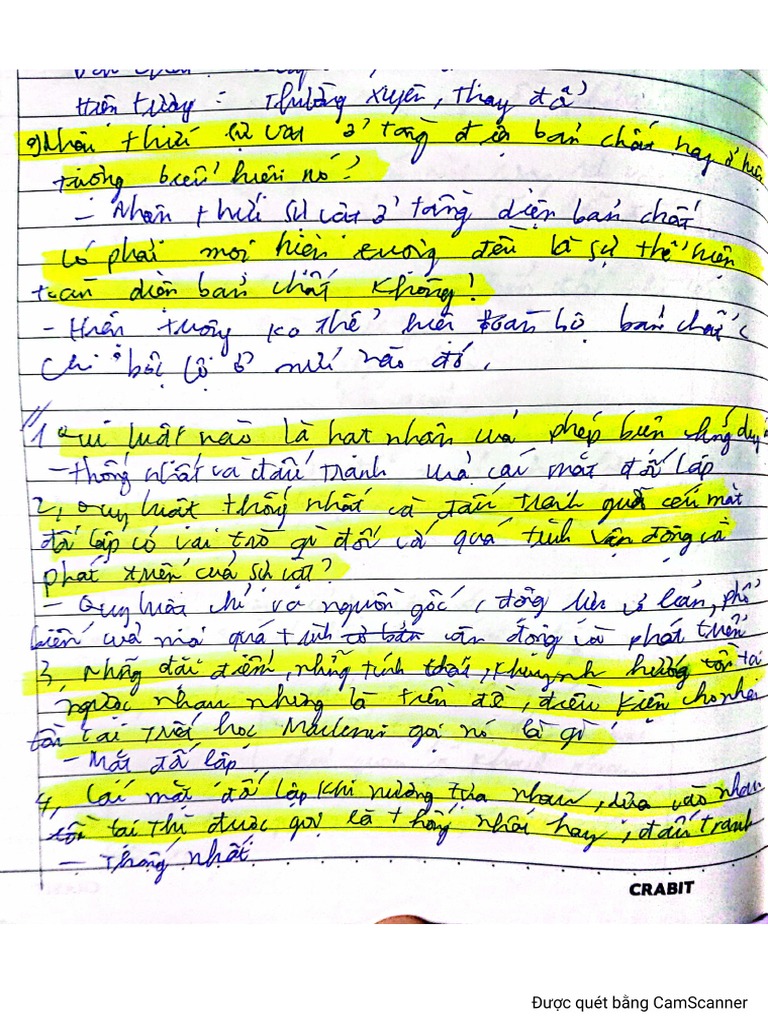 Hiện tượng : Thường xuyên, thay đổi
9) Nhận thức sự vật ở tầng diện bản chất hay ở hiện
tượng biểu hiện nó?
- Nhận thức sự vật ở tầng diện bản chất
Có phải mọi hiện tượng đều là sự thể hiện
toàn diện bản chất không?
- Hiện tượng ko thể hiện toàn bộ bản chất
chỉ bộc lộ ở mức nào đó.
1 Qui luật nào là hạt nhân của phép biện chứng duy
- thống nhất và đấu tranh của các mặt đối lập
2, Quy luật thống nhất và đấu tranh giữa các mặt
đối lập có vai trò gì đối với quá trình vận động và
phát triển của sự vật?
- Quy luật chỉ ra nguồn gốc, động lực cơ bản, phổ
biến của mọi quá trình vận động và phát triển
3, Những đặc điểm, những tính, khuynh hướng tồn tại
ngược nhau nhưng là tiền đề, điều kiện cho nhau
tồn tại triết học Maclenin gọi nó là gì
- Mặt đối lập
4, Các mặt đối lập khi nương tựa nhau, dựa vào nhau
tồn tại thì được gọi là thống nhất hay, đấu tranh
- Thống nhất
CRABIT
Được quét bằng CamScanner